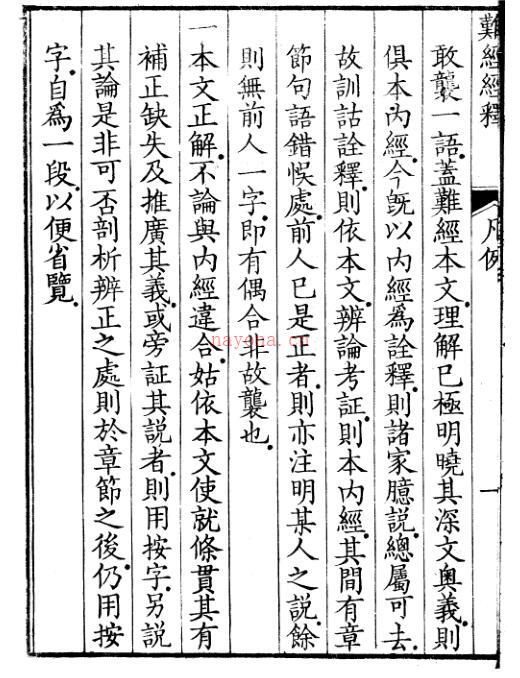 難經經釋
凡例
一
敢襲一語蓋難經本文理解已極明曉其深文奧義則
俱本內經今旣以內經爲詮釋則諸家臆說總屬可去
故訓詁詮釋則依本文辨論考証則本內經其間有章
節句語錯悞處前人已是正者則亦注明某人之說餘
則無前人一字卽有偶合非故襲也
一本文正解不論與內經違合姑依本文使就條貫其有
補正缺失及推廣其義或旁証其說者則用按字另說
其論是非可否剖析辨正之處則於章節之後仍用按
字自爲一段以便省覽
nayona.cn